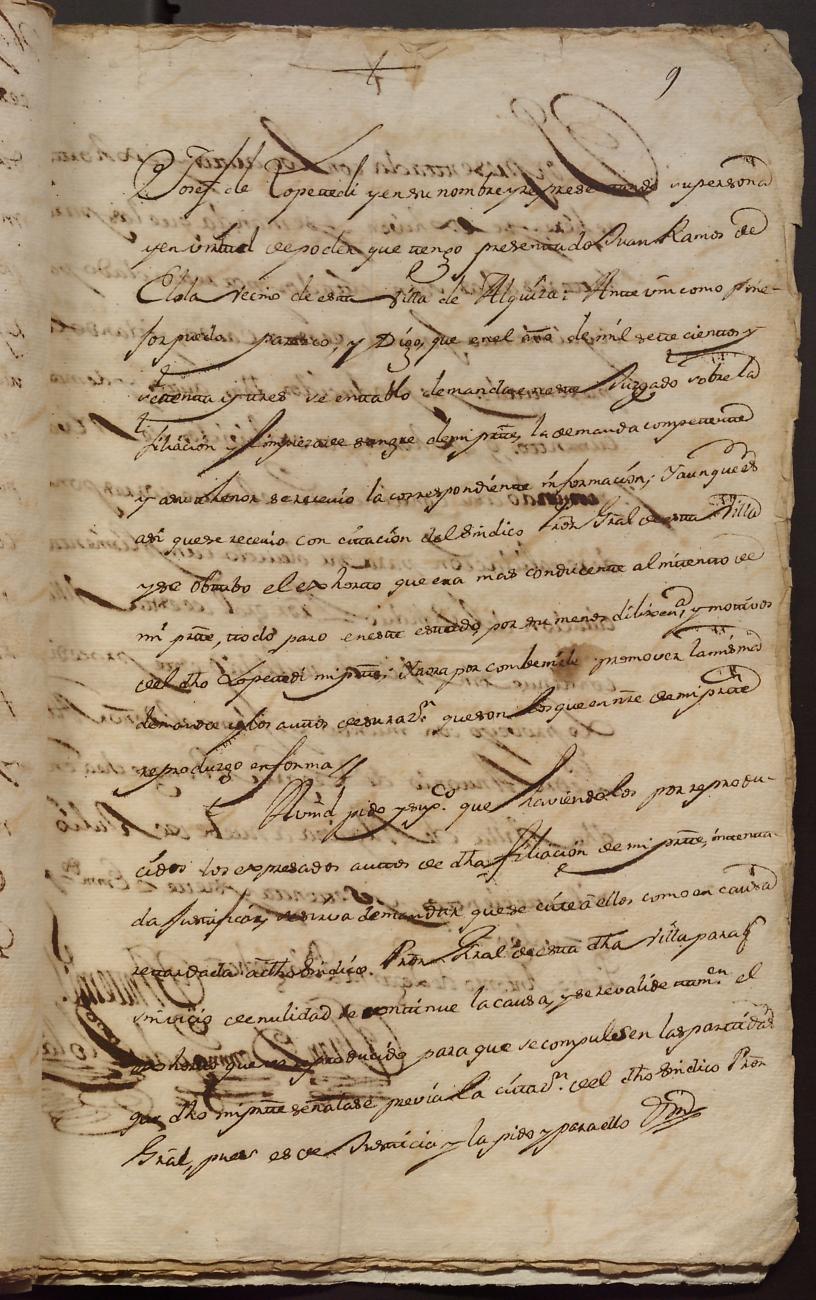 9
Josef de Lopetedi y en su nombre y representando su persona
y en virtud de poder que tengo presentado Juan Ramos de
Elola vecino de esta villa de Alquiza: Ante Vm como me-
jor puedo parezco, y Digo, que en el año de mil sete cientos y
setenta y tres se entablo demanda en este Juzgado sobre la
filiación y limpieza de sangre de mi prte, la demanda competente
y a su thenor se recevio la correspondiente información; Y aunque es
asi que se recevio con citación del Sindico Pror Gral de esta Villa
y se obtubo el exhorto que era mas conducente al intento de
mi prte, todo paro en este estado por su menos dilixena, y motivos
de el dho Lopetedi mi prte; Y aora por combenirle promover la misma
demanda y los autos de su razn. que son los que en nre de mi prte
reproduzgo en forma
A Vmd pido y supco. que haviendolos por reprodu-
cidos los expresados autos de dha filiación de mi prte, intenta-
da justificar, se sirva de mandar que se cite a ellos como en causa
retardada a dho Sindico Pror Gral de esta dha Villa para q
sin vicio de nulidad se continue la causa, y se revalide tamn. el
exhorto que va reproducido para que se compulsen las partidas
que dho mi prte señalase previa la citazn. de el dho Sindico Pror
Gral, pues es de Justicia y la pido y para ello